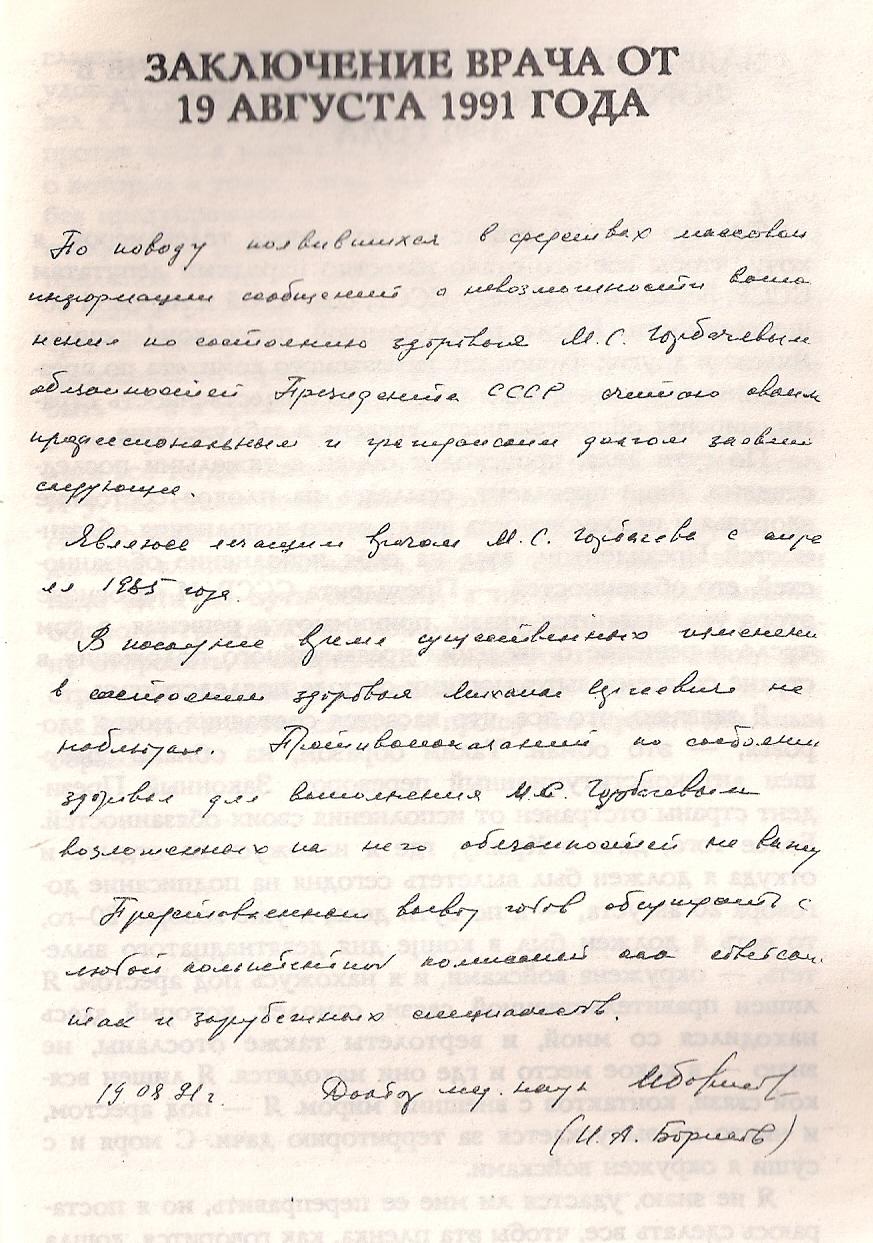 ЗАКЛЮЧЕНИЕ ВРАЧА ОТ
19 АВГУСТА 1991 ГОДА
По поводу появившихся в средствах массовой
информации сообщений о невозможности выпол
нения по состоянию здоровья М. С. Горбачевым
обязанностей Президента СССР считаю своим
профессиональным и гражданским долгом заявить
следующее.
Являюсь лечащим врачом М. С. Горбачева с апре
ля 1985 года.
В последнее время существенных изменений
в состоянии здоровья Михаила Сергеевича не
наблюдаю. Противопоказаний по состоянию
здоровья для выполнения М.С. Горбачевым
возложенных на него обязанностей не вижу
Представленный вывод готов обсуждать с
любой компетентной комиссией как советских
так и зарубежных специалистов.
19 08 91 г. Доктор мед. наук
(И. А. Борисов)